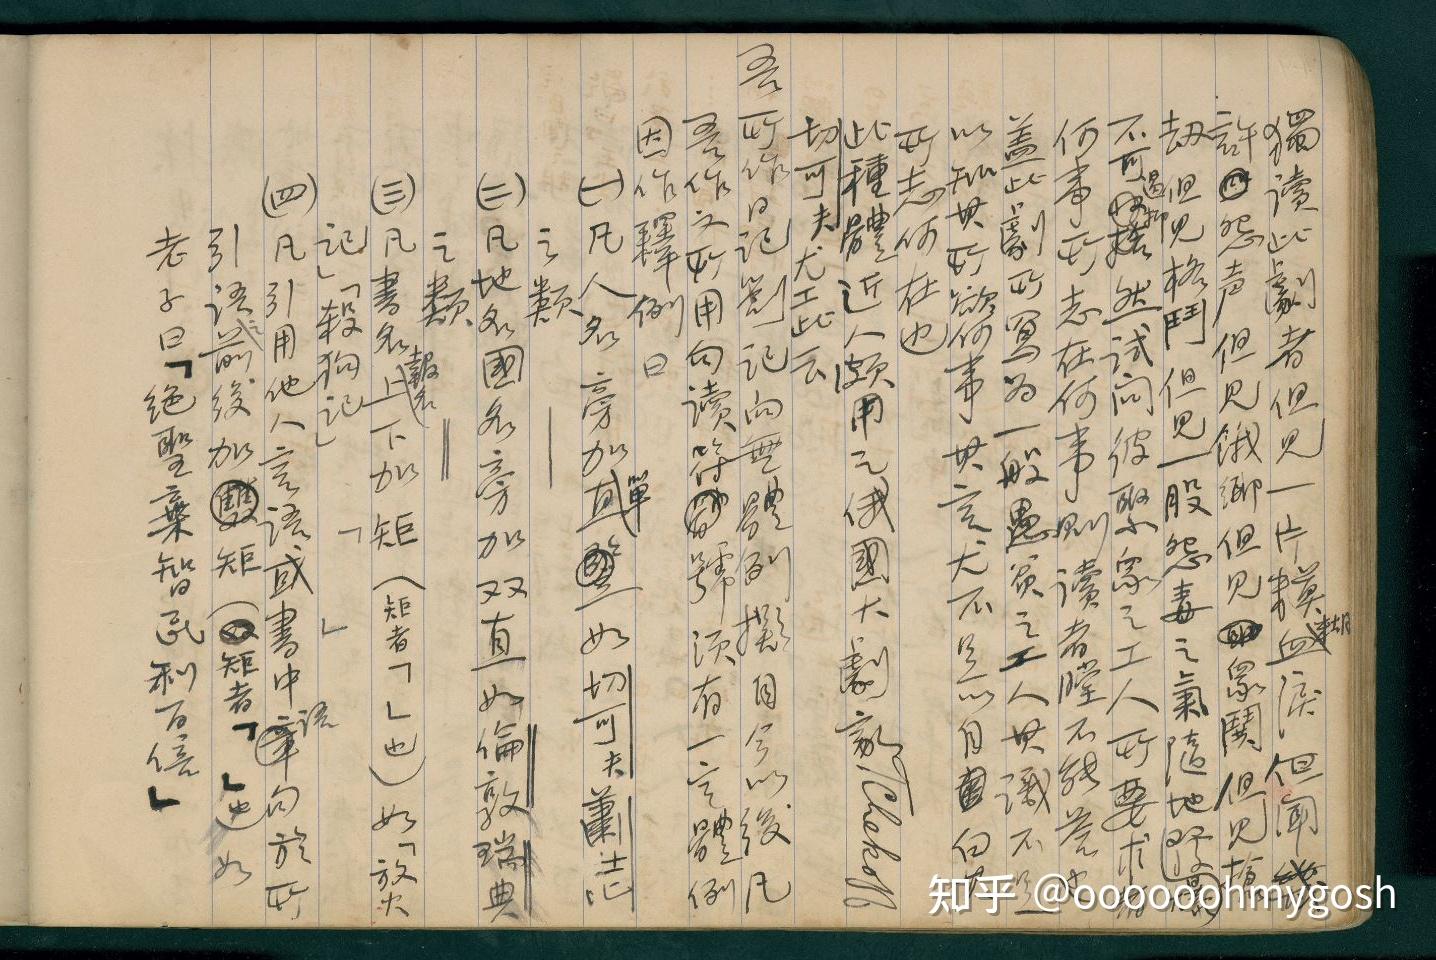 獨讀此劇者但見一片模糊血淚但聞幾
許怨声但見餓鄉但見眾鬨但見搶
劫但見格鬥但見一股怨毒之氣隨地
不可遏抑然試問彼聚眾之工人所要求者
何事所志在何事則讀者瞠不能答也
蓋此劇所寫爲一般愚貧之工人其識不足
以知其所欲何事其言尤不足以自白其
所志何在也
此種體近人頗用之俄國大劇家Chekoff
切可夫尤工此云
吾所作日記劄記向無體例擬自今以後凡
吾作文所用句讀符號須有一定體例
因作釋例曰
(一)凡人名旁加單直 如切可夫蕭士比
之類
(二)凡地名國名旁加双直如倫敦瑞典
之類
(三)凡書名報名上下加矩(矩者「 」也)如「放火
記」「殺狗記」
(四)凡引用他人言語或書中語句於所
引語前後加雙矩(矩者「 」也)如
老子曰「絕聖棄智民利百倍」
知乎 @ooooooohmygosh